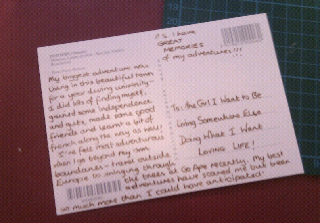 P.S. I have
GREAT
MEMORIES
of my adventures!!!
My biggest adventure was
living in this beautiful town
for a year during university -
I did lots of finding myself,
gained some independence
and guts, made some good
friends and learnt a bit of
french along the way as well!
I feel most adventurous
when I go beyond my own
boundaries - travel outside
Europe to swinging through
the trees at Go Ape recently. My best
adventures have scared me but been
so much more than I could have anticipated!
To: the Girl I Want to Be
Living Somewhere Else
Doing What I Want
LOVING LIFE!